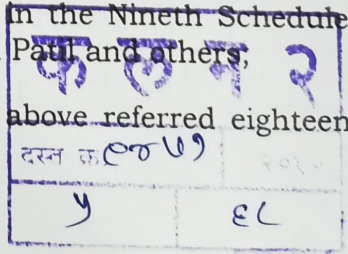 in the Nineth Schedule
Patil and others;
क ल न २
above referred eighteen
दस्त क्र.
५ ६८